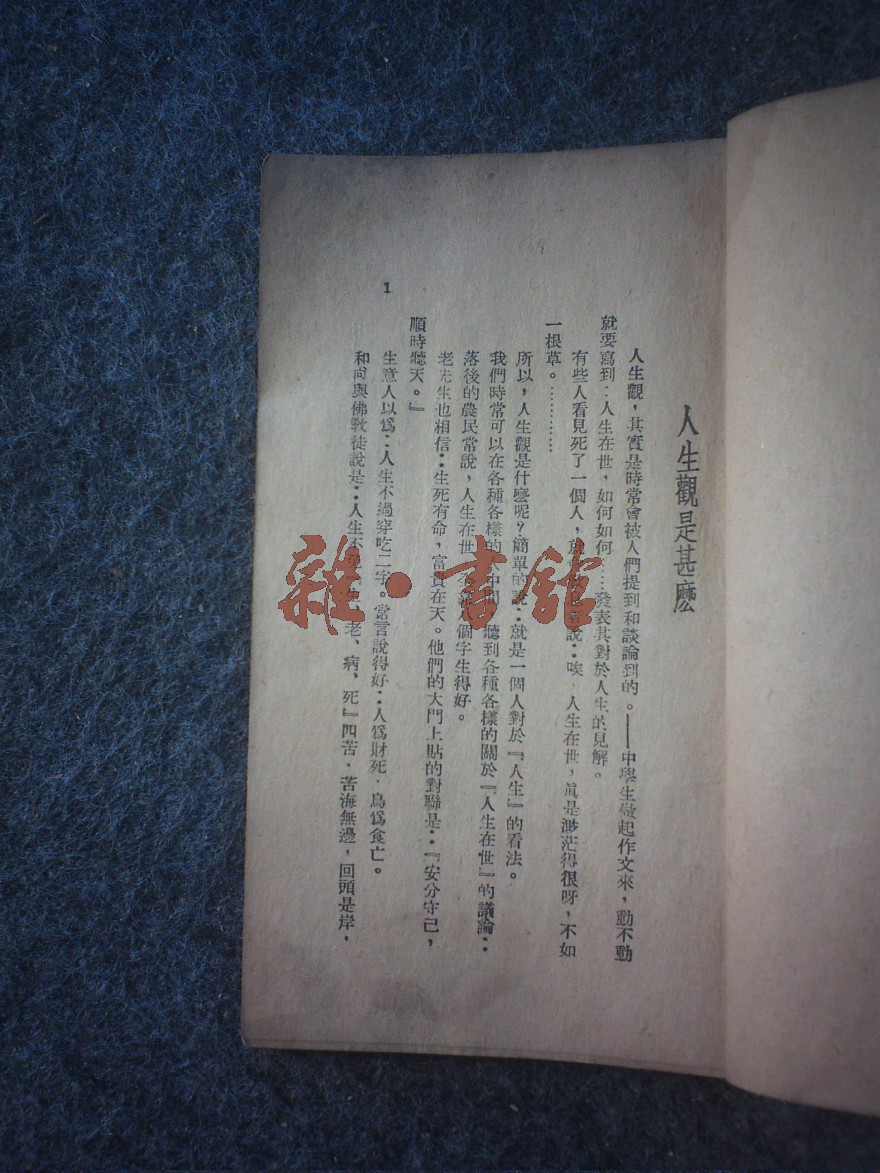 人生觀是甚麽
人生觀，其實是時常會被人們提到和談論到的。——中學生做起作文來，動不動
就要寫到：人生在世，如何如何……發表其對於人生的見解。
有些人看見死了一個人，就 說：唉，人生在世，眞是渺茫得很呀，不如
一根草。…………
所以，人生觀是什麼呢？簡單的說：就是一個人對於『人生』的看法。
我們時常可以在各種各樣的 中間，聽到各種各樣的關於『人生在世』的議論：
落後的農民常說，人生在世， 個字生得好。
老先生也相信：生死有命，富貴在天。他們的大門上貼的對聯是：『安分守己，
順時聽天。』
生意人以爲：人生不過穿吃二字。常言說得好：人爲財死，鳥爲食亡。
和尙與佛敎徒說是：人生不 老、病、死』四苦，苦海無邊，回頭是岸，
1
雜·書館